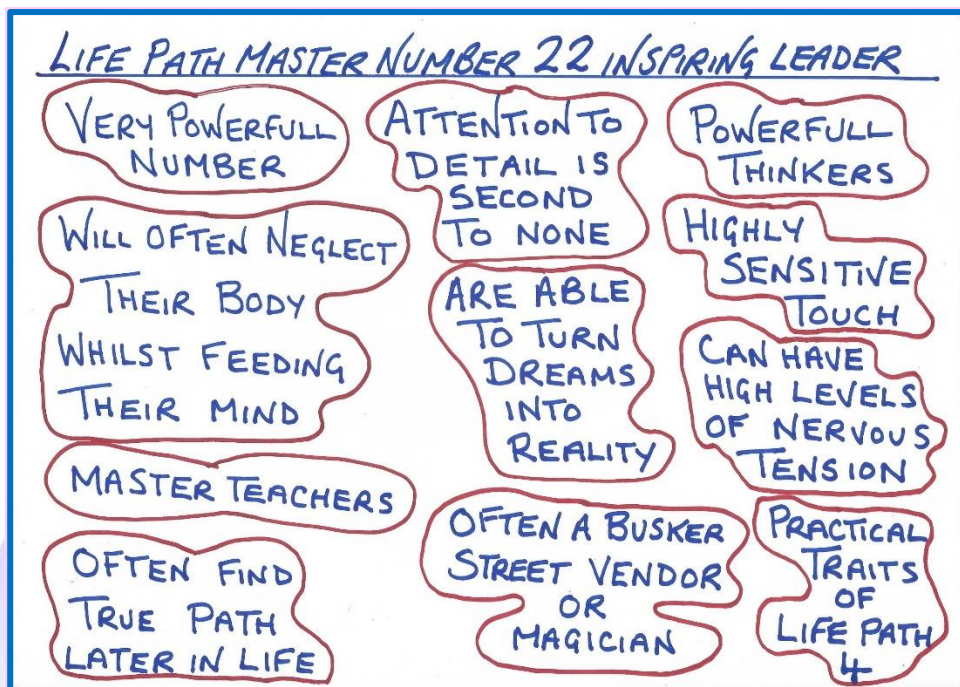 LIFE PATH MASTER NUMBER 22 INSPIRING LEADER
VERY POWERFULL
NUMBER
WILL OFTEN NEGLECT
THEIR BODY
WHILST FEEDING
THEIR MIND
MASTER TEACHERS
OFTEN FIND
TRUE PATH
LATER IN LIFE
ATTENTION TO
DETAIL IS
SECOND
TO NONE
ARE ABLE
TO TURN
DREAMS
INTO
REALITY
OFTEN A BUSKER
STREET VENDOR
OR
MAGICIAN
POWERFULL
THINKERS
HIGHLY
SENSITIVE
TOUCH
CAN HAVE
HIGH LEVELS
OF NERVOUS
TENSION
PRACTICAL
TRAITS
OF
LIFE PATH
4